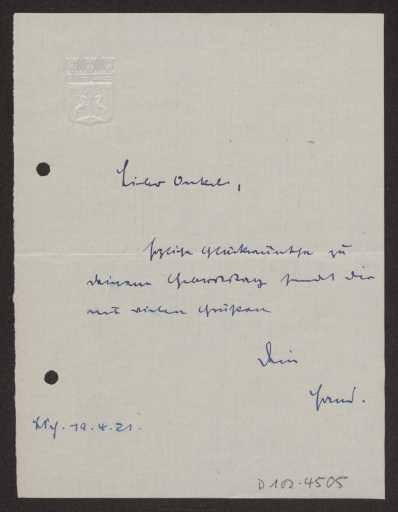 Lieber Onkel,
herzliche Glückwünsche zu
deinem Geburtstag sendet Dir
mit vielen Grüßen
Dein
19.4.21.
D 102-4505